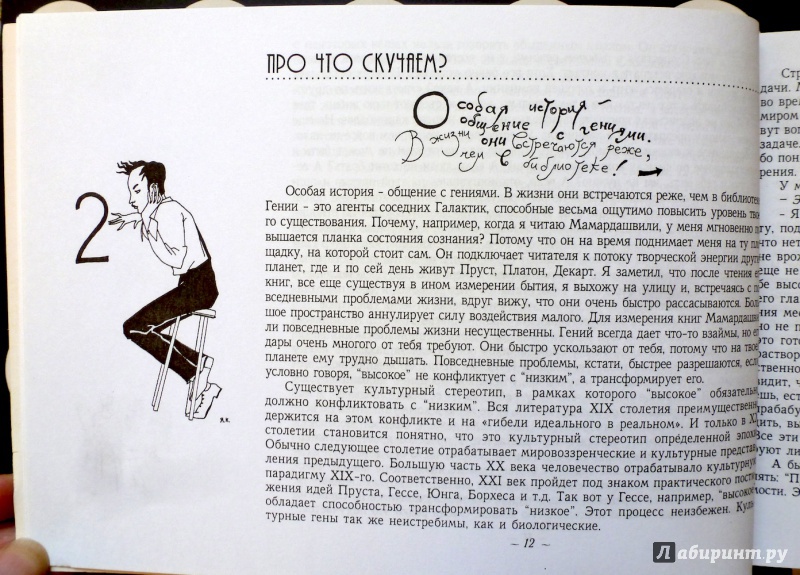 ПРО ЧТО СКУЧАЕМ?
Особая история –
общение с гениями.
В жизни они встречаются реже,
чем в библиотеке!
2
Особая история - общение с гениями. В жизни они встречаются реже, чем в библиоте
Гении - это агенты соседних Галактик, способные весьма ощутимо повысить уровень тво
го существования. Почему, например, когда я читаю Мамардашвили, у меня мгновенно п
вышается планка состояния сознания? Потому что он на время поднимает меня на ту пл
щадку, на которой стоит сам. Он подключает читателя к потоку творческой энергии други
планет, где и по сей день живут Пруст, Платон, Декарт. Я заметил, что после чтения е
книг, все еще существуя в ином измерении бытия, я выхожу на улицу и, встречаясь с п
вседневными проблемами жизни, вдруг вижу, что они очень быстро рассасываются. Бол
шое пространство аннулирует силу воздействия малого. Для измерения книг Мамардашв
ли повседневные проблемы жизни несущественны. Гений всегда дает что-то взаймы, но е
дары очень многого от тебя требуют. Они быстро ускользают от тебя, потому что на твое
планете ему трудно дышать. Повседневные проблемы, кстати, быстрее разрешаются, есл
условно говоря, “высокое” не конфликтует с “низким”, а трансформирует его.
Существует культурный стереотип, в рамках которого “высокое” обязательн
должно конфликтовать с “низким”. Вся литература XIX столетия преимущественн
держится на этом конфликте и на «гибели идеального в реальном». И только в X
столетии становится понятно, что это культурный стереотип определенной эпохи
Обычно следующее столетие отрабатывает мировоззренческие и культурные представ
ления предыдущего. Большую часть XX века человечество отрабатывало культурну
парадигму XIX-го. Соответственно, XXI век пройдет под знаком практического пости
жения идей Пруста, Гессе, Юнга, Борхеса и т.д. Так вот у Гессе, например, “высокое
обладает способностью трансформировать “низкое”. Этот процесс неизбежен. Куль
турные гены так же неистребимы, как и биологические.
– 12 –
Лабиринт.ру